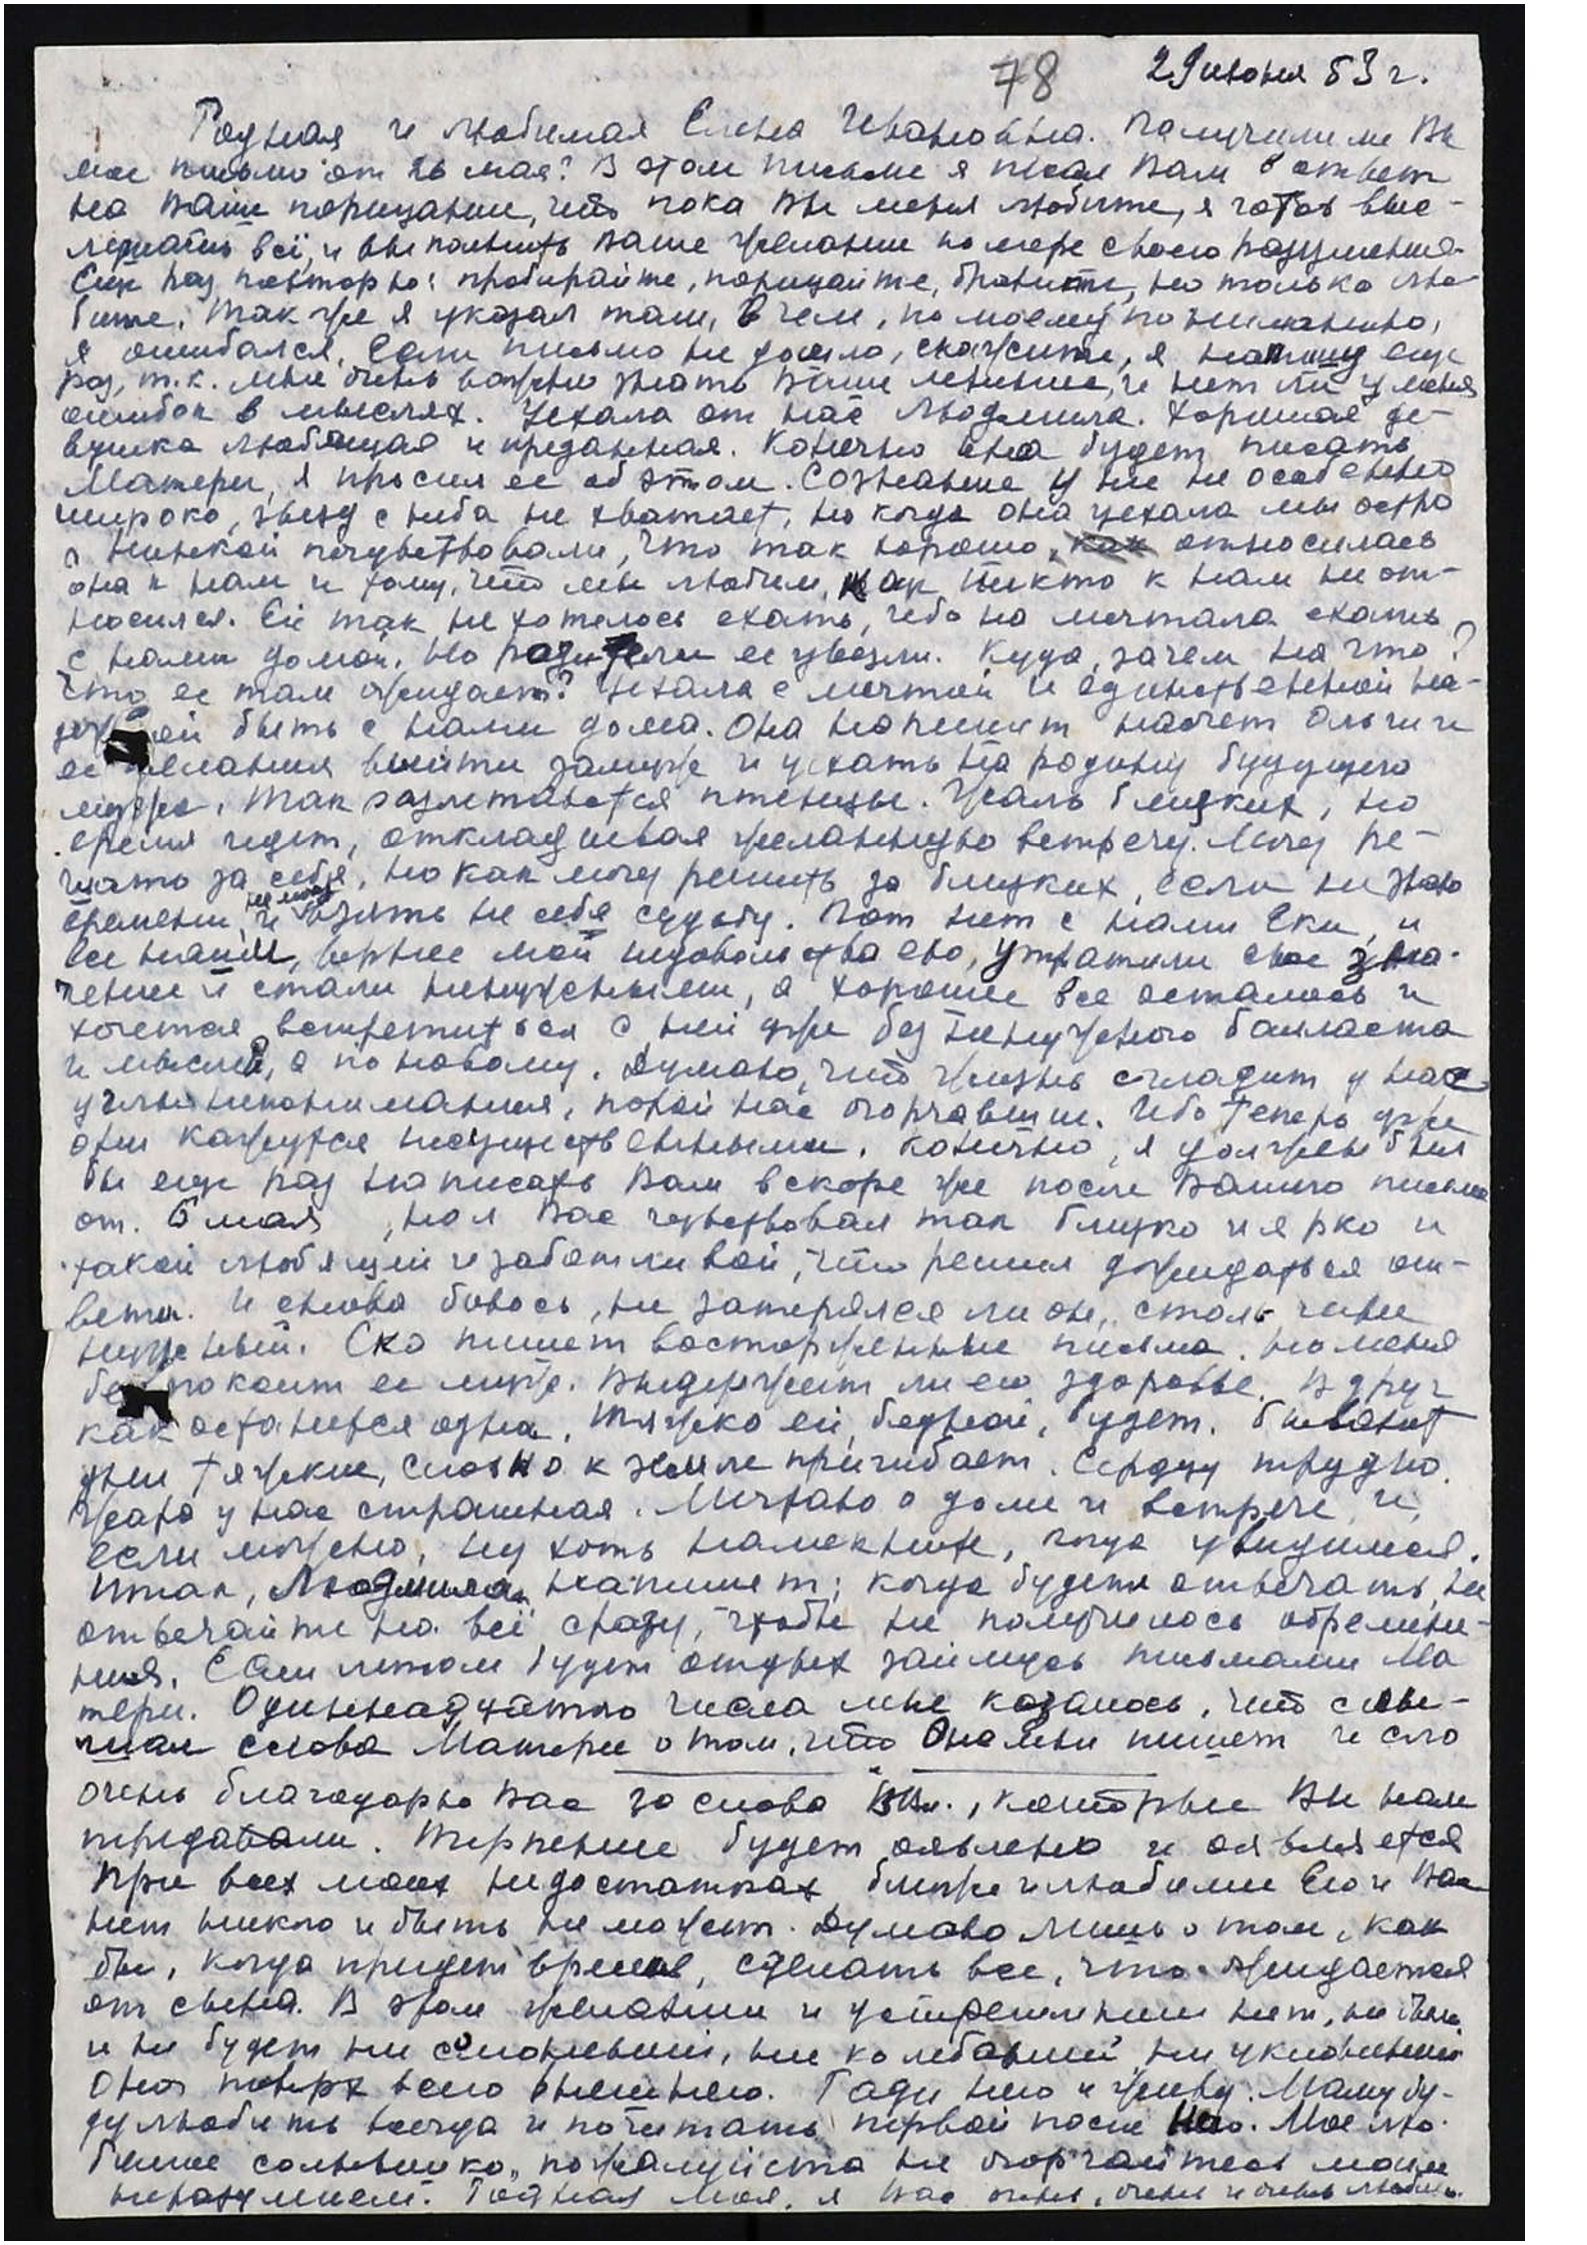 78 29 июня 53 г.
Родная и любимая Елена Ивановна. Получили ли Вы
мое письмо от 26 мая? В этом письме я писал Вам в ответ
на Ваши порицания, что пока Вы меня любите, я готов выс-
лушать всё, и выполнить Ваше желание по мере своего разумения.
Еще раз повторяю: пробирайте, порицайте, браните, но только лю-
бите. Так же я указал там, в чем, по моему пониманию,
я ошибался. Если письмо не дошло, скажите, я напишу еще
раз, т.к. мне очень важно знать Ваше мнение, и нет ли у меня
ошибок в мыслях. Уехала от нас Людмила. Хорошая де-
вушка любящая и преданная. Конечно она будет писать
Матери, я просил ее об этом. Сознание у нее не особенно
широко, звезд с неба не хватает, но когда она уехала мы остро
с Нинкой почувствовали, что так хорошо, как относилась
она к нам и тому, что мы любим, как никто к нам не от-
носился. Ей так не хотелось ехать, ибо но мечтала ехать
с нами домой. Но родители ее увезли. Куда, зачем на что?
Что ее там ожидает? Уехала с мечтой и единственной на-
деждой быть с нами дома. Она напишет насчет Ольги и
ее желания выйти замуж и уехать на родину будущего
мужа. Так разлетаются птенцы. Жаль близких, но
время идет, откладывая желанную встречу. Могу ре-
шать за себя, но как могу решить за близких, если не знаю
времени, и не могу взять на себя судьбу. Вот нет с нами Ски, и
все наши, вернее мои недовольства ею, утратили свое зна-
чение и стали ненужными, а хорошее все осталось и
хочется встретиться с ней уже без ненужного балласта
и мыслей, а по новому. Думаю, что жизнь сгладит у нас
углы непонимания, порой нас огорчавшие. Ибо теперь уже
они кажутся несущественными. Конечно, я должен был
бы еще раз написать Вам вскоре же после Вашего письма
от 6 мая, но я Вас чувствовал так близко и ярко и
такой любящей и заботливой, что решил дожидаться от-
вета. И снова боюсь, не затерялся ли он, столь мне
нужный. Ска пишет восторженные письма, но меня
беспокоит ее муж. Выдержит ли его здоровье. Вдруг
как останется одна. Тяжко ей, бедной, будет. Бывают
дни тяжкие, словно к земле пригибает. Сердцу трудно.
Жара у нас страшная. Мечтаю о доме и встрече и,
если можно, ну хоть намекните, когда увидимся.
Итак, Людмила напишет; когда будете отвечать, не
отвечайте на всё сразу, чтобы не получилось обремене-
ния. Если летом будет отдых займусь письмами Ма
тери. Одиннадцатого числа мне казалось, что слы-
шал слова Матери о том, что Она мне пишет число
очень благодарю Вас за слова Вл., которые Вы нам
передавали. Терпение будет явлено и является
При всех моих недостатках ближе и любимее Его и Вас
нет никого и быть не может. Думаю лишь о том, как
бы, когда придет время, сделать все, что ожидается
от сына. В этом желании и устремлении нет, не было
и не будет ни сомнений, ни колебаний, ни уклонений
Оно поверх всего внешнего. Ради него и живу. Маму бу-
ду любить всегда и почитать первой после Него. Мое лю-
бимое солнышко, пожалуйста не огорчайтесь моим
неразумием. Родная моя, я Вас очень, очень и очень люблю.